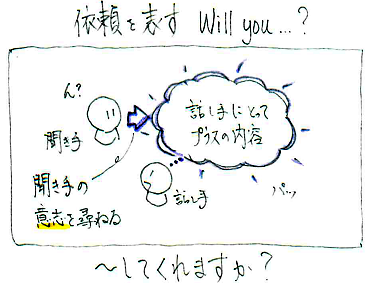 依頼を表す Will you...?
ん?
聞き手
話し手にとって
プラスの内容
聞き手の
意志を尋ねる
話し手
パッ
〜してくれますか?